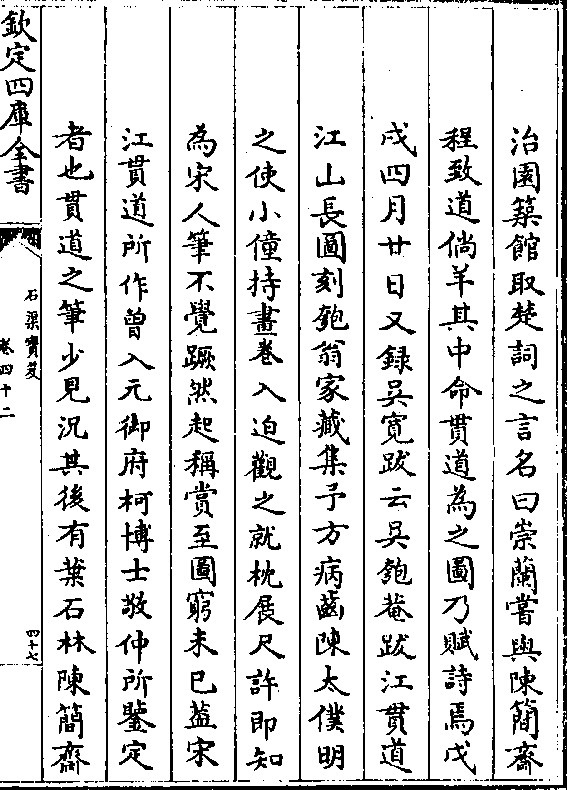 治園築館取楚詞之言名曰崇蘭嘗與陳簡齋
程致道倘羊其中命貫道為之圖乃賦詩焉戊
戌四月廿日又録吳寛跋云吳匏菴跋江貫道
江山長圖刻匏翁家藏集予方病齒陳太僕明
之使小僮持畫巻入迫觀之就枕展尺許即知
為宋人筆不覺蹶然起稱賞至圖窮未已葢宋
江貫道所作曾入元御府柯博士敬仲所鑒定
者也貫道之筆少見況其後有葉石林陳簡齋
欽定四庫全書
石渠寶笈
巻四十二
四十七